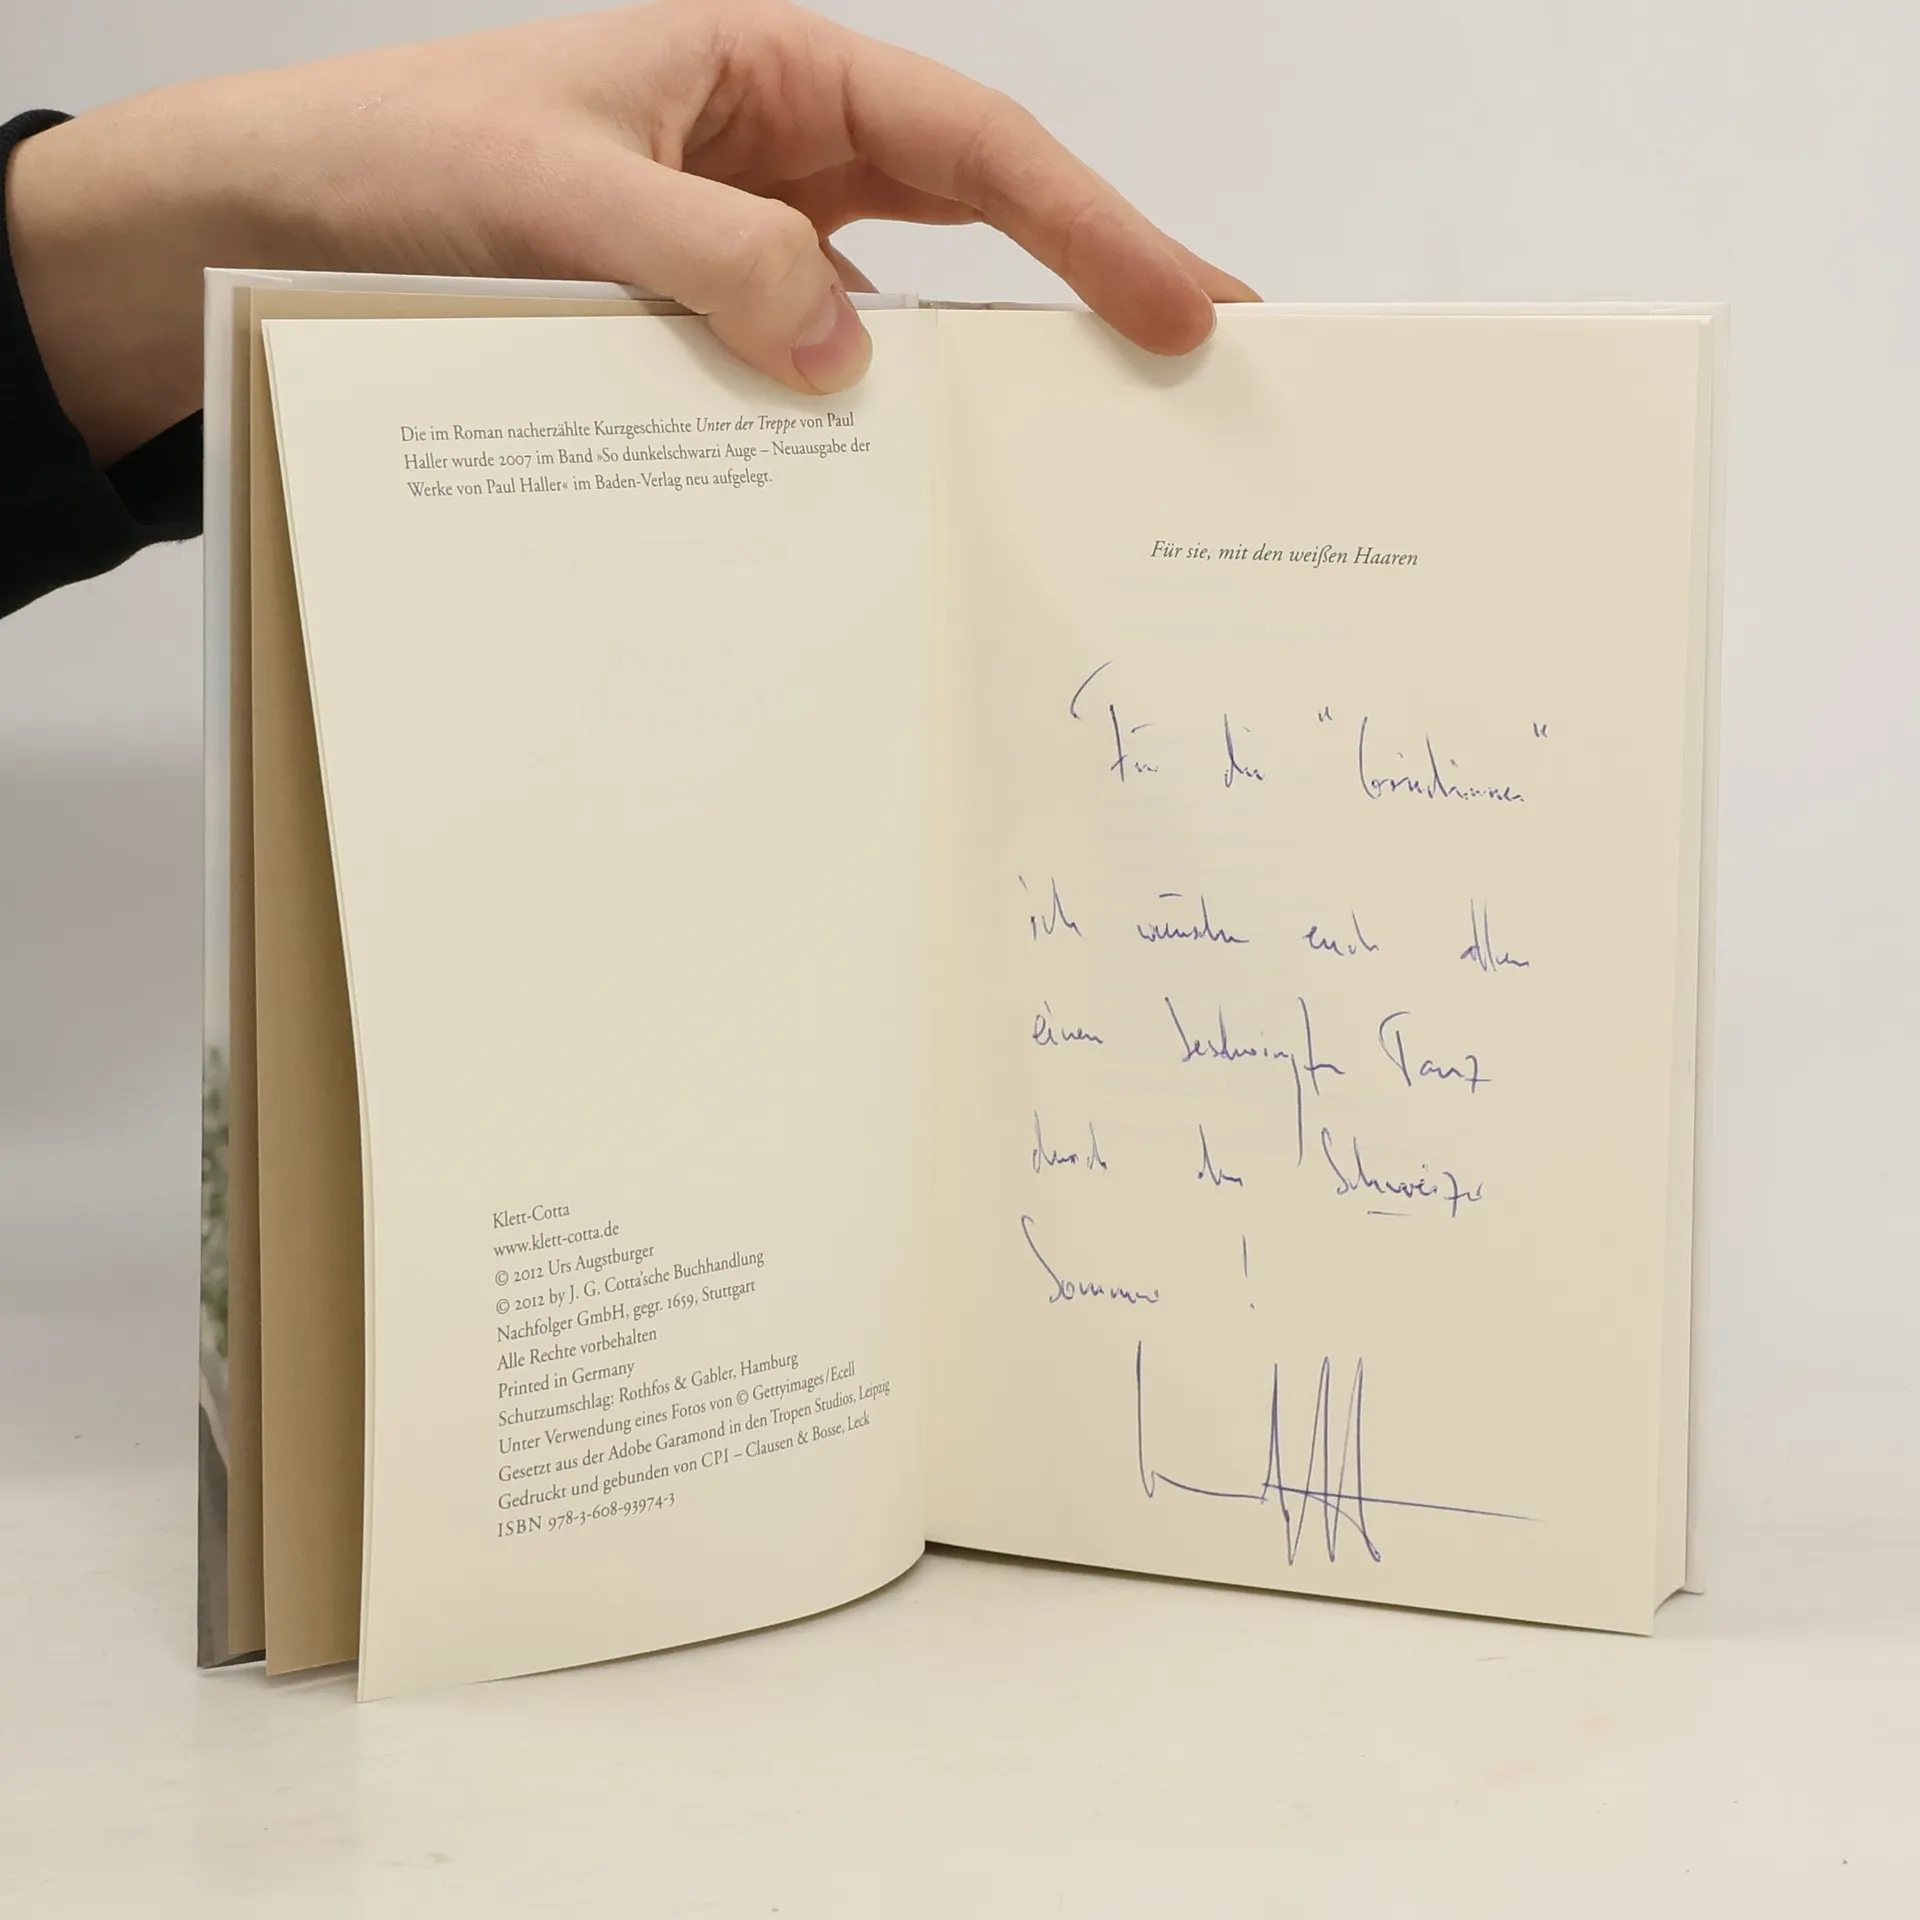 Die im Roman nacherzählte Kurzgeschichte Unter der Treppe von Paul
Haller wurde 2007 im Band »So dunkelschwarzi Auge – Neuausgabe der
Werke von Paul Haller« im Baden-Verlag neu aufgelegt.
Klett-Cotta
www.klett-cotta.de
© 2012 Urs Augstburger
© 2012 by J. G. Cotta'sche Buchhandlung
Nachfolger GmbH, gegr. 1659, Stuttgart
Alle Rechte vorbehalten
Printed in Germany
Schutzumschlag: Rothfos & Gabler, Hamburg
Unter Verwendung eines Fotos von © Gettyimages/Ecell
Gesetzt aus der Adobe Garamond in den Tropen Studios, Leipzig
Gedruckt und gebunden von CPI – Clausen & Bosse, Leck
ISBN 978-3-608-93974-3
Für sie, mit den weißen Haaren
Für die
ich wünsche euch allen
einen beschwingten Tanz
durch den Schweizer
Sommer !